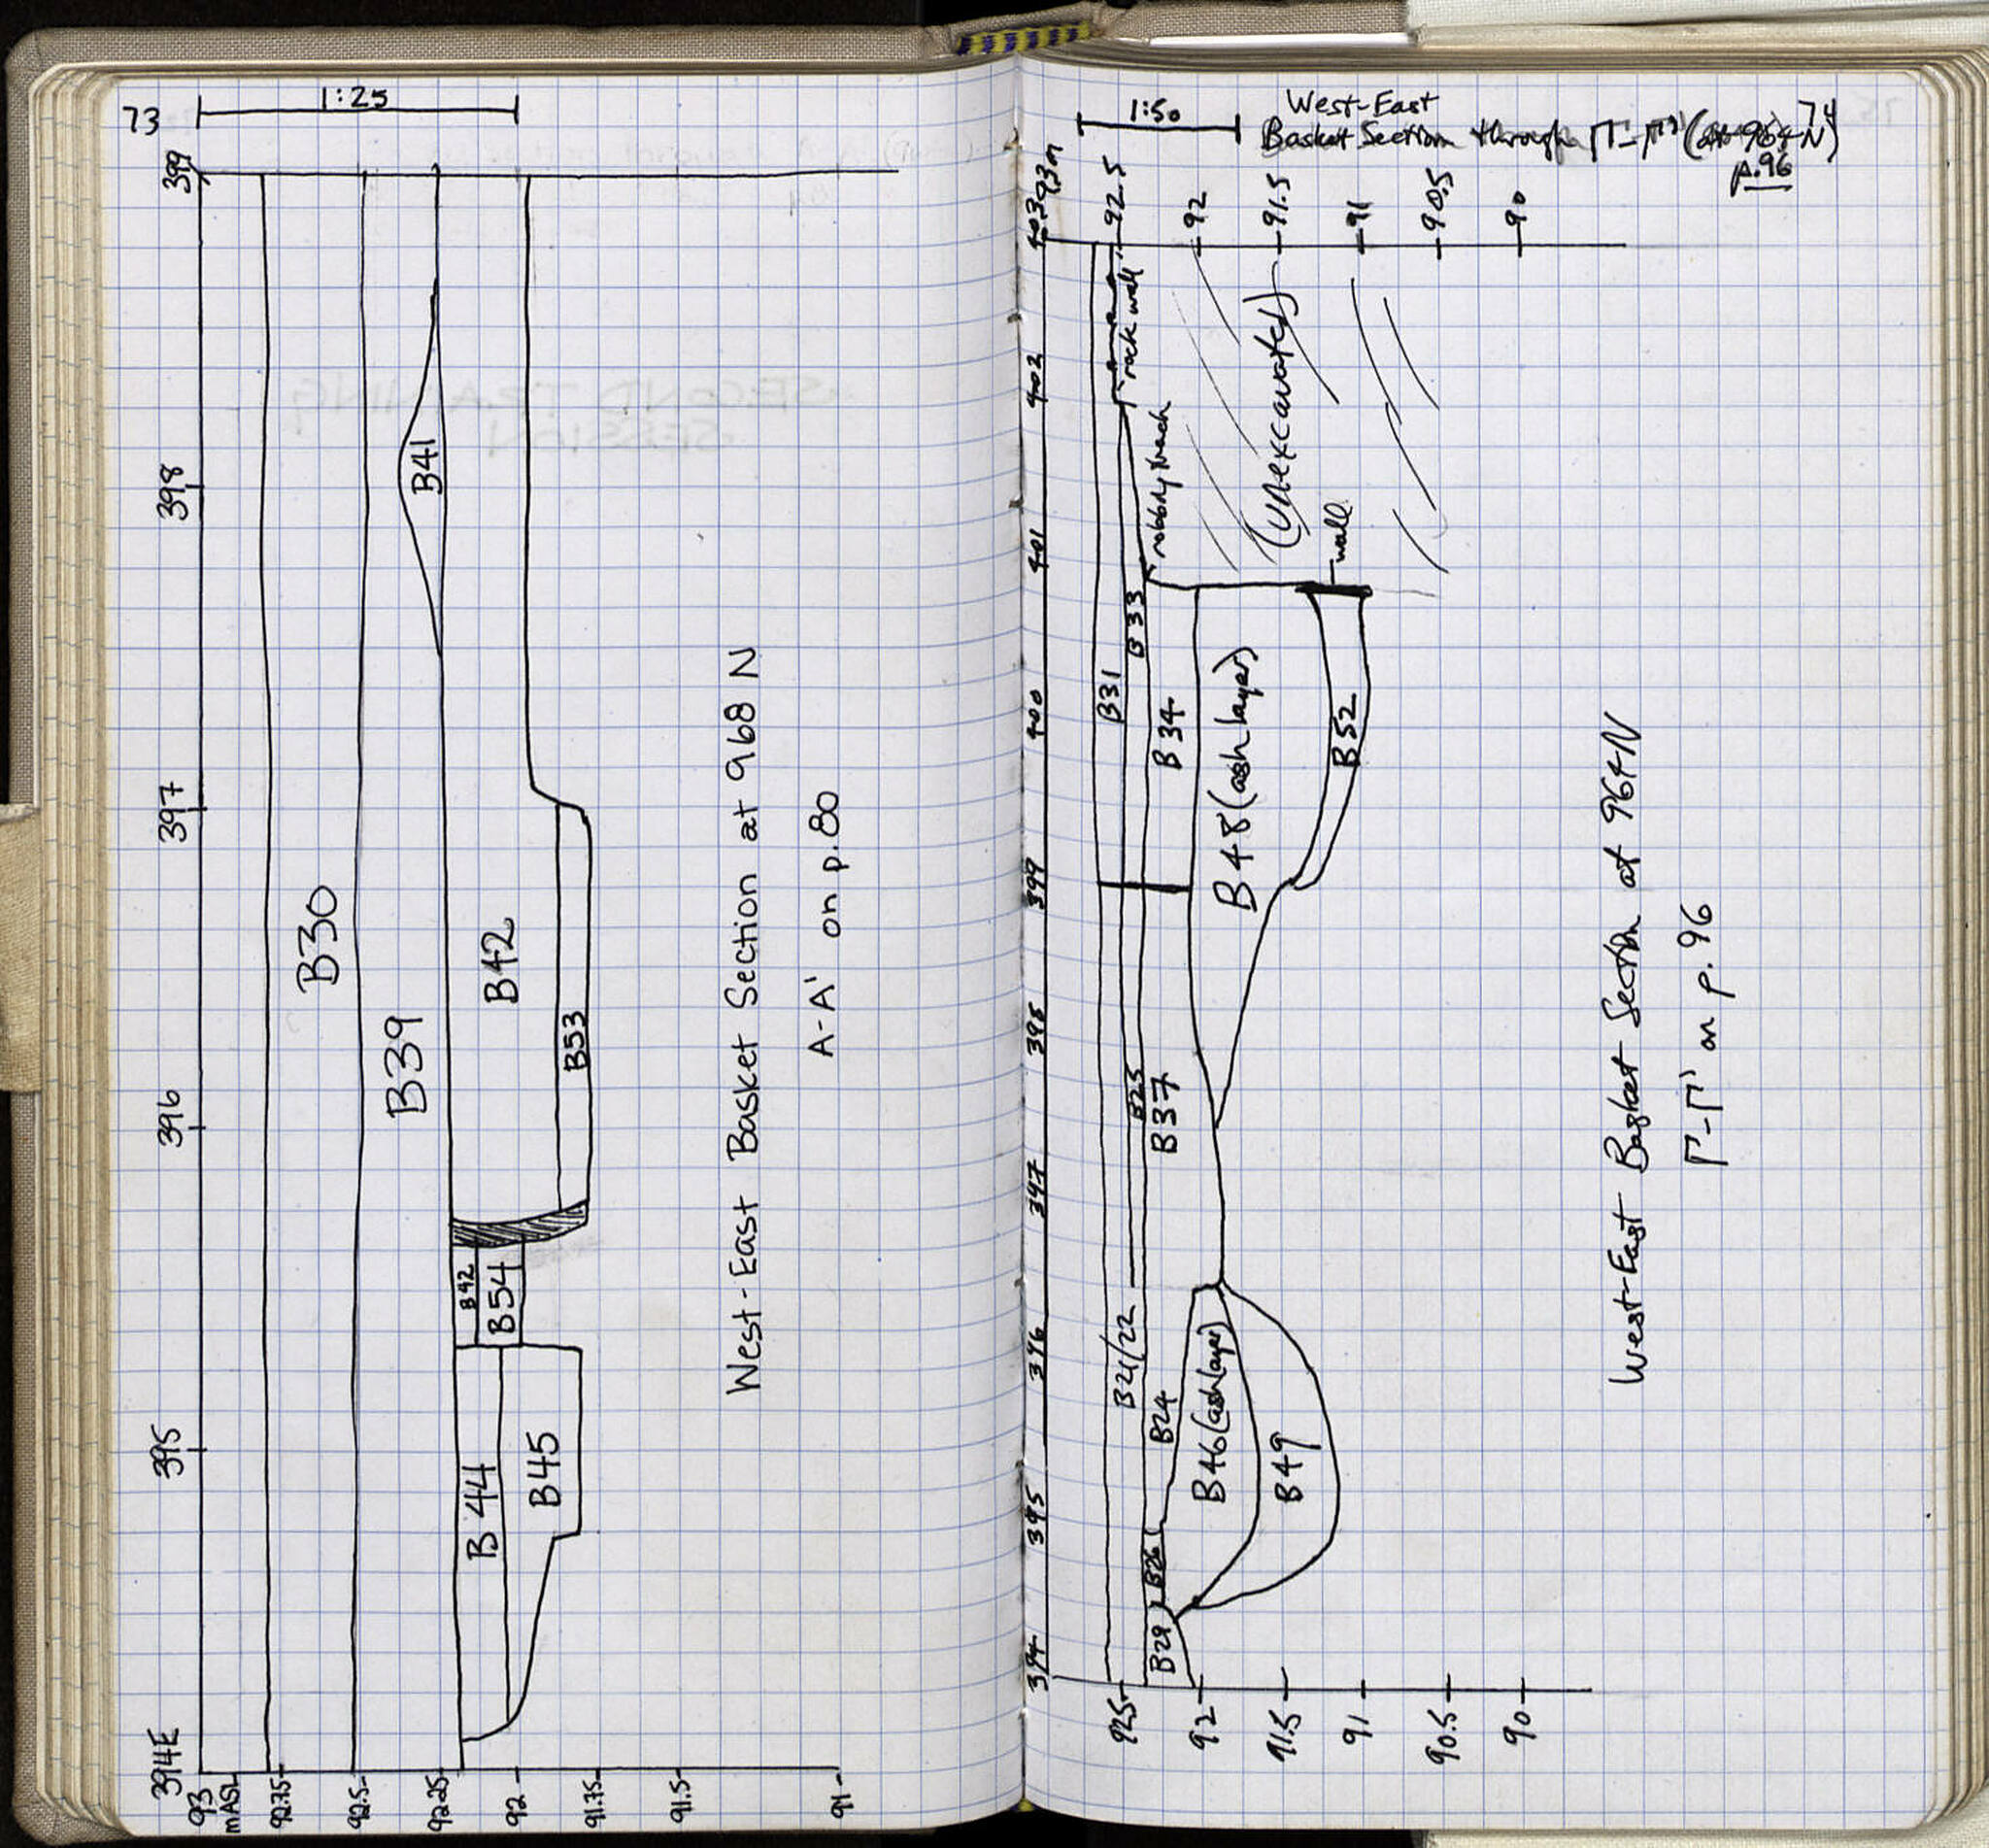 73
1:25
399
398
397
396
395
394E
93
mASL
92.75
92.5
92.25
92
91.75
91.5
91
B30
B39
B41
B42
B53
B42
B54
B44
B45
West-East Basket Section at 968 N
A-A' on p.80
SECOND TRAINING
SESSION
74
1:50
West-East
Basket Section through Γ-Γ' (at 964 N)
p.96
93m
92.5
92
91.5
91
90.5
90
403
402
401
400
399
398
397
396
395
394
925
92
91.5
91
90.5
90
rock wall
(unexcavated)
wall
B31
B33
B34
B48 (ash layer)
B52
B25
B37
B21/22
B24
B46 (ash layer)
B49
B26
B29
West-East Basket Section at 964N
Γ-Γ' on p.96